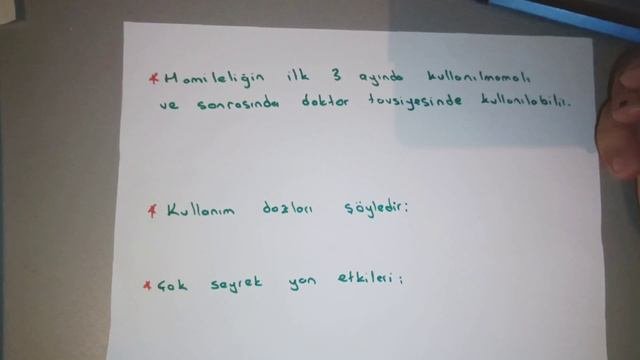 * Hamileliğin ilk 3 ayında kullanılmamalı
ve sonrasında doktor tavsiyesinde kullanılabilir.
* Kullanım dozları şöyledir:
* Çok seyrek yan etkileri;